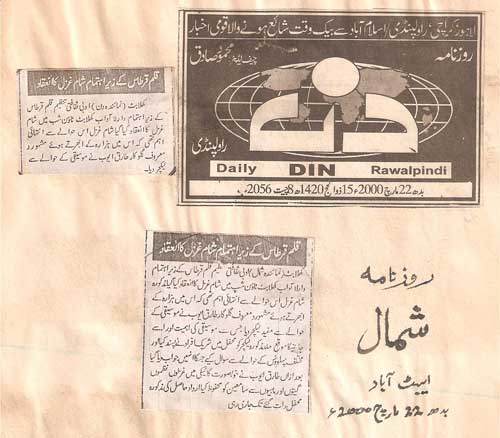 لاہور، کراچی، راولپنڈی، اسلام آباد سے بیک وقت شائع ہونے والا قومی اخبار
روزنامہ
چیف ایڈیٹر محمود صادق
دن
راولپنڈی
Daily DIN Rawalpindi
بدھ 22 مارچ 2000ء 15 ذوالحج 1420ھ 8 چیت 2056ب
قلم قرطاس کے زیر اہتمام شام غزل کا انعقاد
کھلابٹ (نمائندہ دن) ادبی ثقافتی تنظیم قلم قرطاس
کے زیر اہتمام دارلآداب کھلابٹ ٹاؤن شپ میں شام
غزل کا انعقاد کیا گیا شام غزل اس حوالے سے انتہائی
اہم تھی کہ اس میں ہزارہ کے ابھرتے ہوئے مشہور و
معروف گلوکار طارق ایوب نے موسیقی کے حوالے سے
لیکچر دیا۔
قلم قرطاس کے زیر اہتمام شام غزل کا انعقاد
کھلابٹ (نمائندہ شمال) ادبی ثقافتی تنظیم قلم قرطاس کے زیر اہتمام
دارلآداب کھلابٹ ٹاؤن شپ میں شام غزل کا انعقاد کیا گیا مذکورہ
شام غزل اس حوالے سے انتہائی اہم تھی کہ اس میں ہزارہ کے
ابھرتے ہوئے مشہور و معروف گلوکار طارق ایوب نے موسیقی کے
حوالے سے مفید لیکچر دیا جس سے موسیقی کی اہمیت اور اسے
جاننے کا موقع ملا مذکورہ لیکچر کو محفل میں شریک افراد نے پسند کیا اور
مختلف پہلوؤں کے حوالے سے سوال کیے جس کا انہیں جواب دیا گیا
بعد ازاں طارق ایوب نے خوبصورت گائیکی میں غزلوں نظموں
گیتوں اور ماہیوں سے سامعین کو محظوظ کیا اور داد حاصل کی مذکورہ
محفل رات گئے تک جاری رہی
روزنامہ
شمال
ایبٹ آباد
بدھ 22 مارچ 2000ء